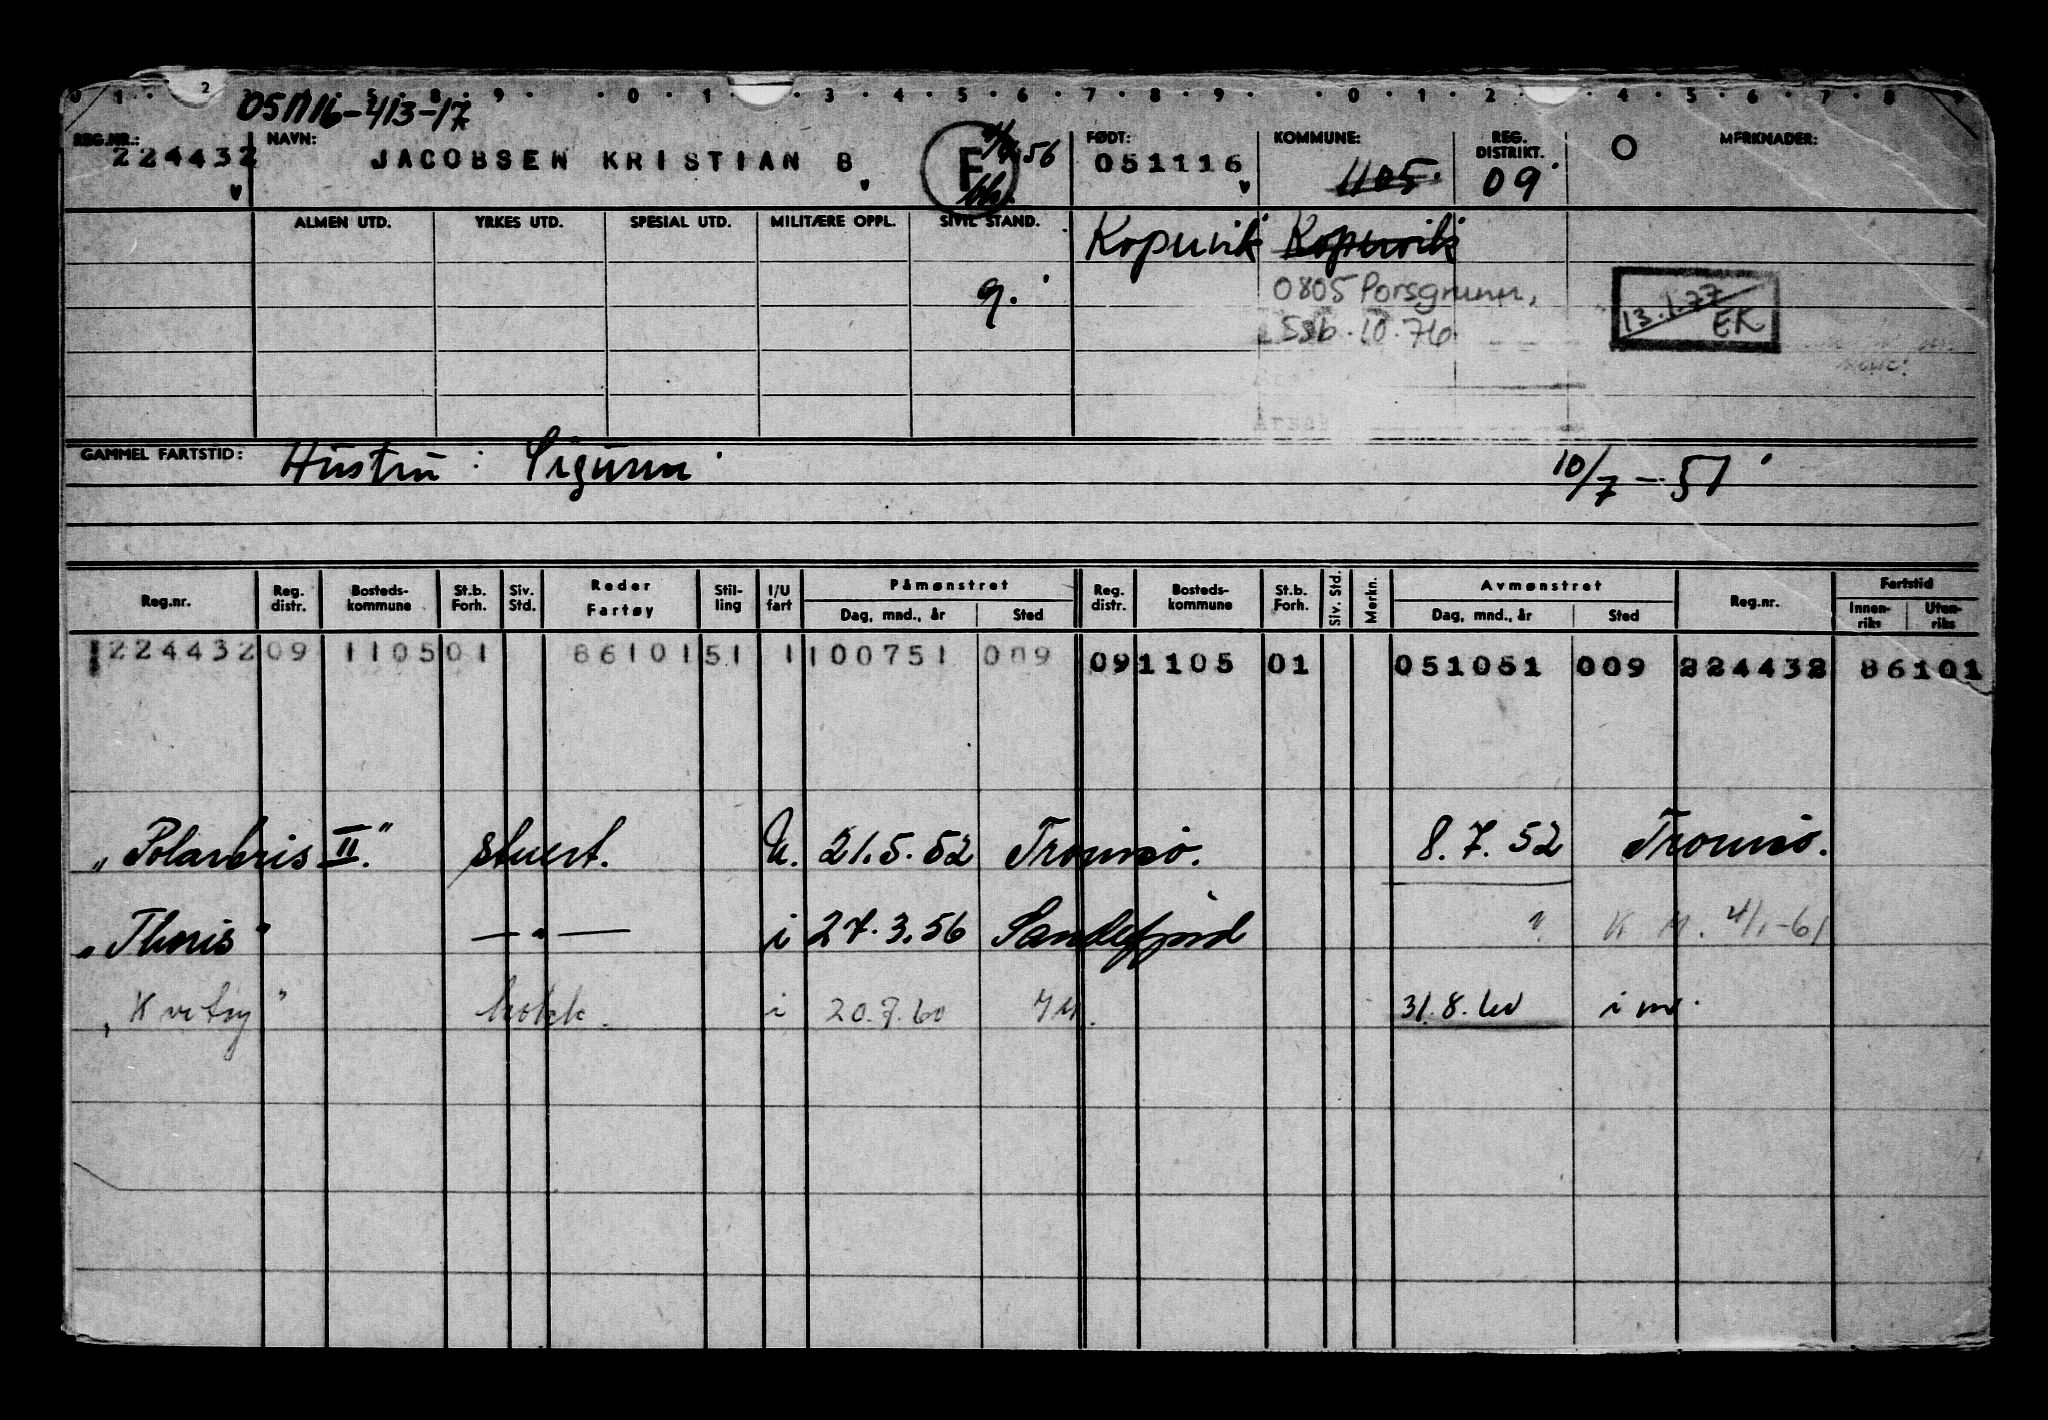 051116-413-17
REG.NR.: NAVN: FØDT: KOMMUNE: REG. DISTRIKT. MERKNADER:
224432 JACOBSEN KRISTIAN B F 56 051116 1105. 09
ALMEN UTD. YRKES UTD. SPESIAL UTD. MILITÆRE OPPL. SIVIL STAND.
Kopervik Kopervik
g. 0805 Porsgrunn, 13.1.77
Ssb. 10.76 EK
GAMMEL FARTSTID: Hustru: Sigunn 10/7-51
Reg.nr. Reg. distr. Bosteds-kommune St.b. Forh. Siv. Std. Reder Fartøy Stil-ling I/U fart Påmønstret Reg. distr. Bosteds-kommune St.b. Forh. Siv. Std. Merkn. Avmønstret Reg.nr. Fartstid
Dag, mnd., år Sted Dag, mnd., år Sted Innen-riks Uten-riks
224432 09 1105 01 86101 51 1 100751 009 09 1105 01 051051 009 224432 86101
"Polarbris II." stuert. U. 21.5.52 Tromsø. 8.7.52 Tromsø.
"Thoris" -"- i 27.3.56 Sandefjord ? K M. 4/1-61
"Kvitøy" kokk. i 20.7.60 31.8.60